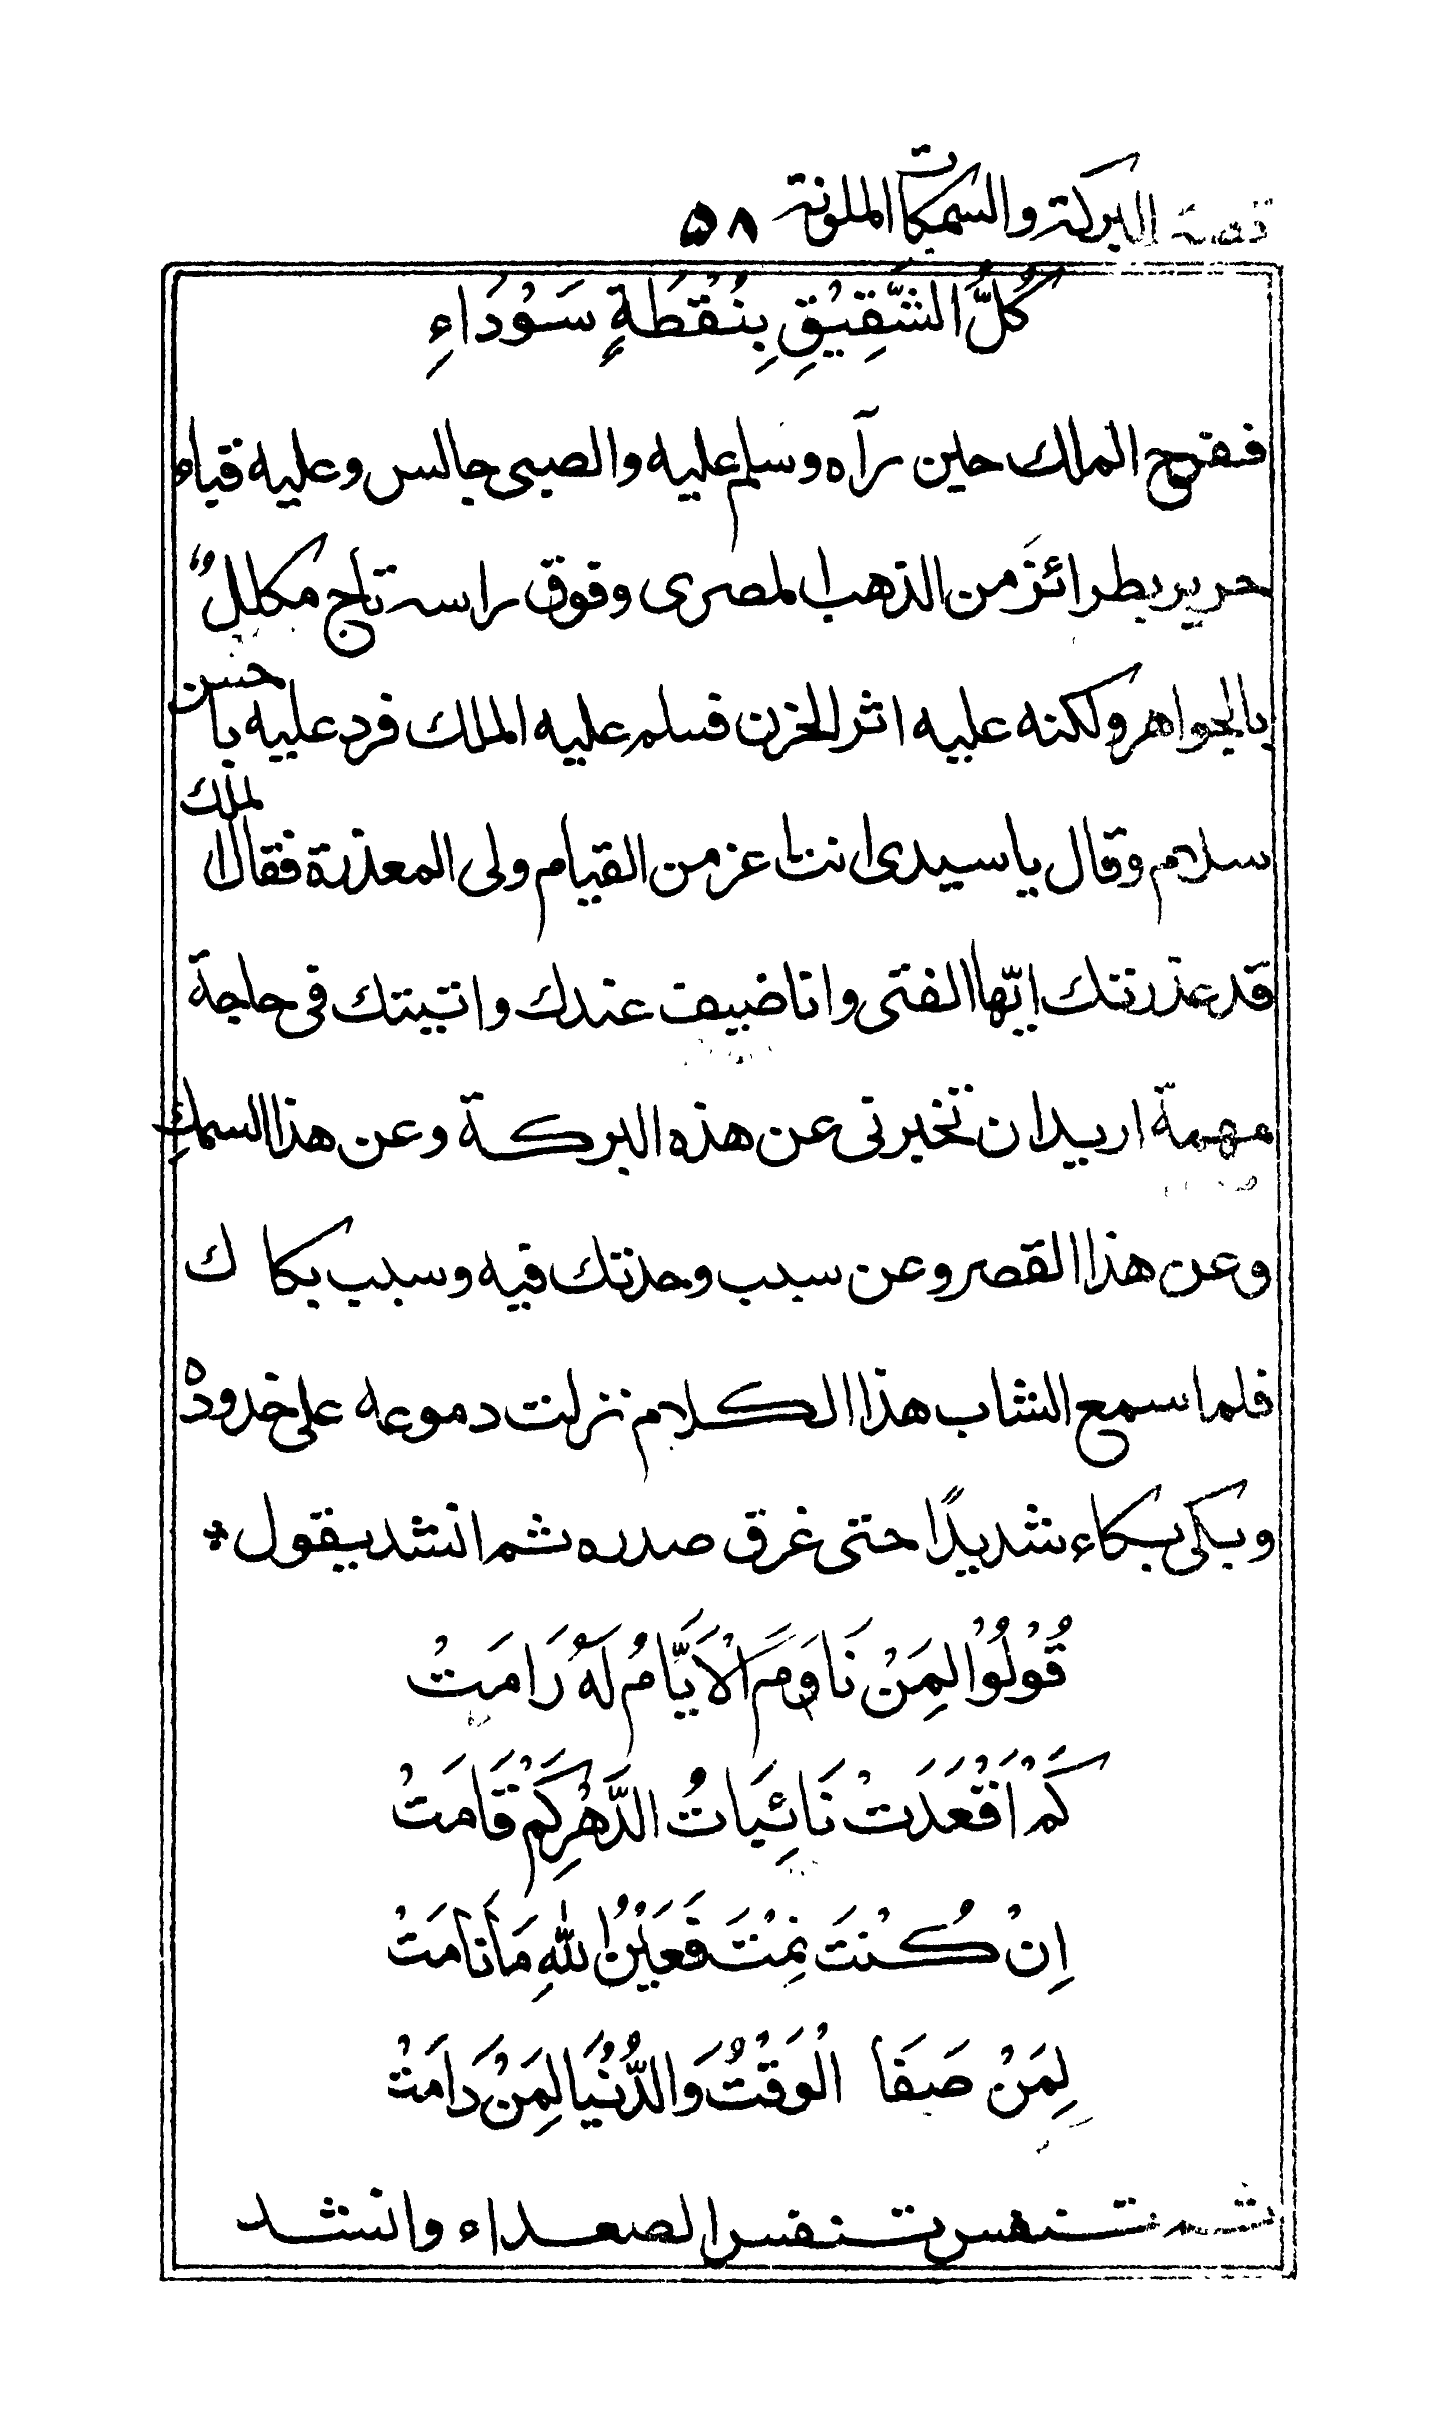 قصة البركة والسمكات الملونة ٥٨
كُلُّ الشَّقِيْقِ بِنُقْطَةٍ سَوْدَاءِ
ففرح الملك حين رآه وسلم عليه والصبى جالس وعليه قباء
حرير بطرائز من الذهب المصرى وفوق راسه تاج مكللٌ
بالجواهر ولكنه عليه اثر الحزن فسلم عليه الملك فرد عليه باحسن
سلام وقال يا سيدى انت اعز من القيام ولى المعذرة فقال الملك
قد عذرتك ايّها الفتى وانا ضيف عندك واتيتك فى حاجة
مهمة اريد ان تخبرنى عن هذه البركة وعن هذا السمك
وعن هذا القصر وعن سبب وحدتك فيه وسبب بكاك
فلما سمع الشاب هذا الكلام نزلت دموعه على خدوده
وبكى بكاء شديدًا حتى غرق صدره ثم انشد يقول *
قُوْلُوْا لِمَنْ نَاوَمَ الْاَيَّامُ لَهُ رَامَتْ
كَمْ اَقْعَدَتْ نَائِبَاتُ الدَّهْرِ كَمْ قَامَتْ
اِنْ كُنْتَ نِمْتَ فَعَيْنُ اللهِ مَا نَامَتْ
لِمَنْ صَفَا الْوَقْتُ وَالدُّنْيَا لِمَنْ دَامَتْ
ثم تنفس تنفس الصعداء وانشد